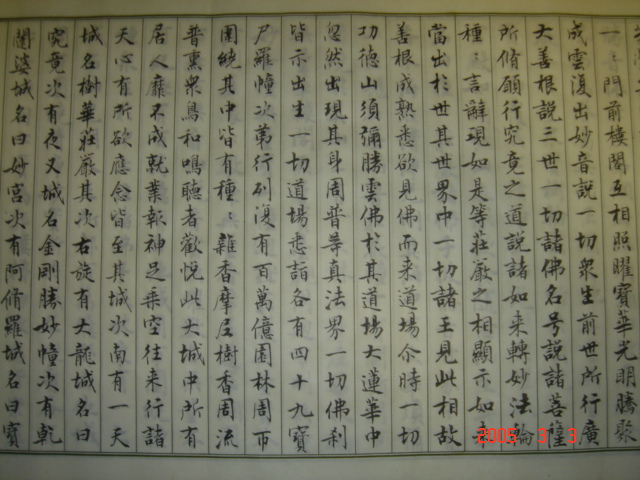 一〻門前樓閣互相照耀寶華光明騰聚
成雲復出妙音說一切眾生前世所行廣
大善根說三世一切諸佛名号說諸菩薩
所脩願行究竟之道說諸如来轉妙法輪
種〻言辭現如是等莊嚴之相顯示如来
當出於世其世界中一切諸王見此相故
善根成熟悉欲見佛而来道場尒時一切
功德山須彌勝雲佛於其道場大蓮華中
忽然出現其身周普等真法界一切佛刹
皆示出生一切道場悉詣各有四十九寶
尸羅幢次第行列復有百萬億園林周帀
圍繞其中皆有種〻雜香摩尼樹香周流
普熏眾鳥和鳴聽者歡悅此大城中所有
居人靡不成就業報神足乘空往来行諸
天心有所欲應念皆至其城次南有一天
城名樹華莊嚴其次右旋有大龍城名曰
究竟次有夜叉城名金剛勝妙幢次有乾
闥婆城名曰妙宮次有阿脩羅城名曰寶
2005 3 3